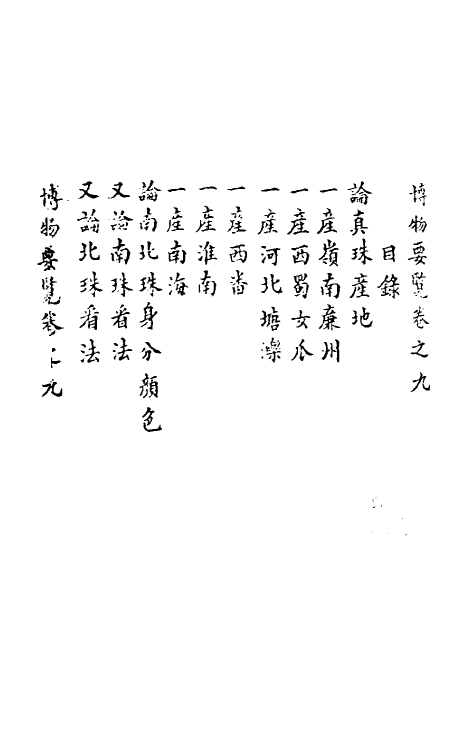 博物要覽卷之九
目錄
論真珠產地
一產嶺南廉州
一產西蜀女瓜
一產河北塘濼
一產西番
一產淮南
一產南海
論南北珠身分顏色
又論南珠看法
又論北珠看法
博物要覽卷之九